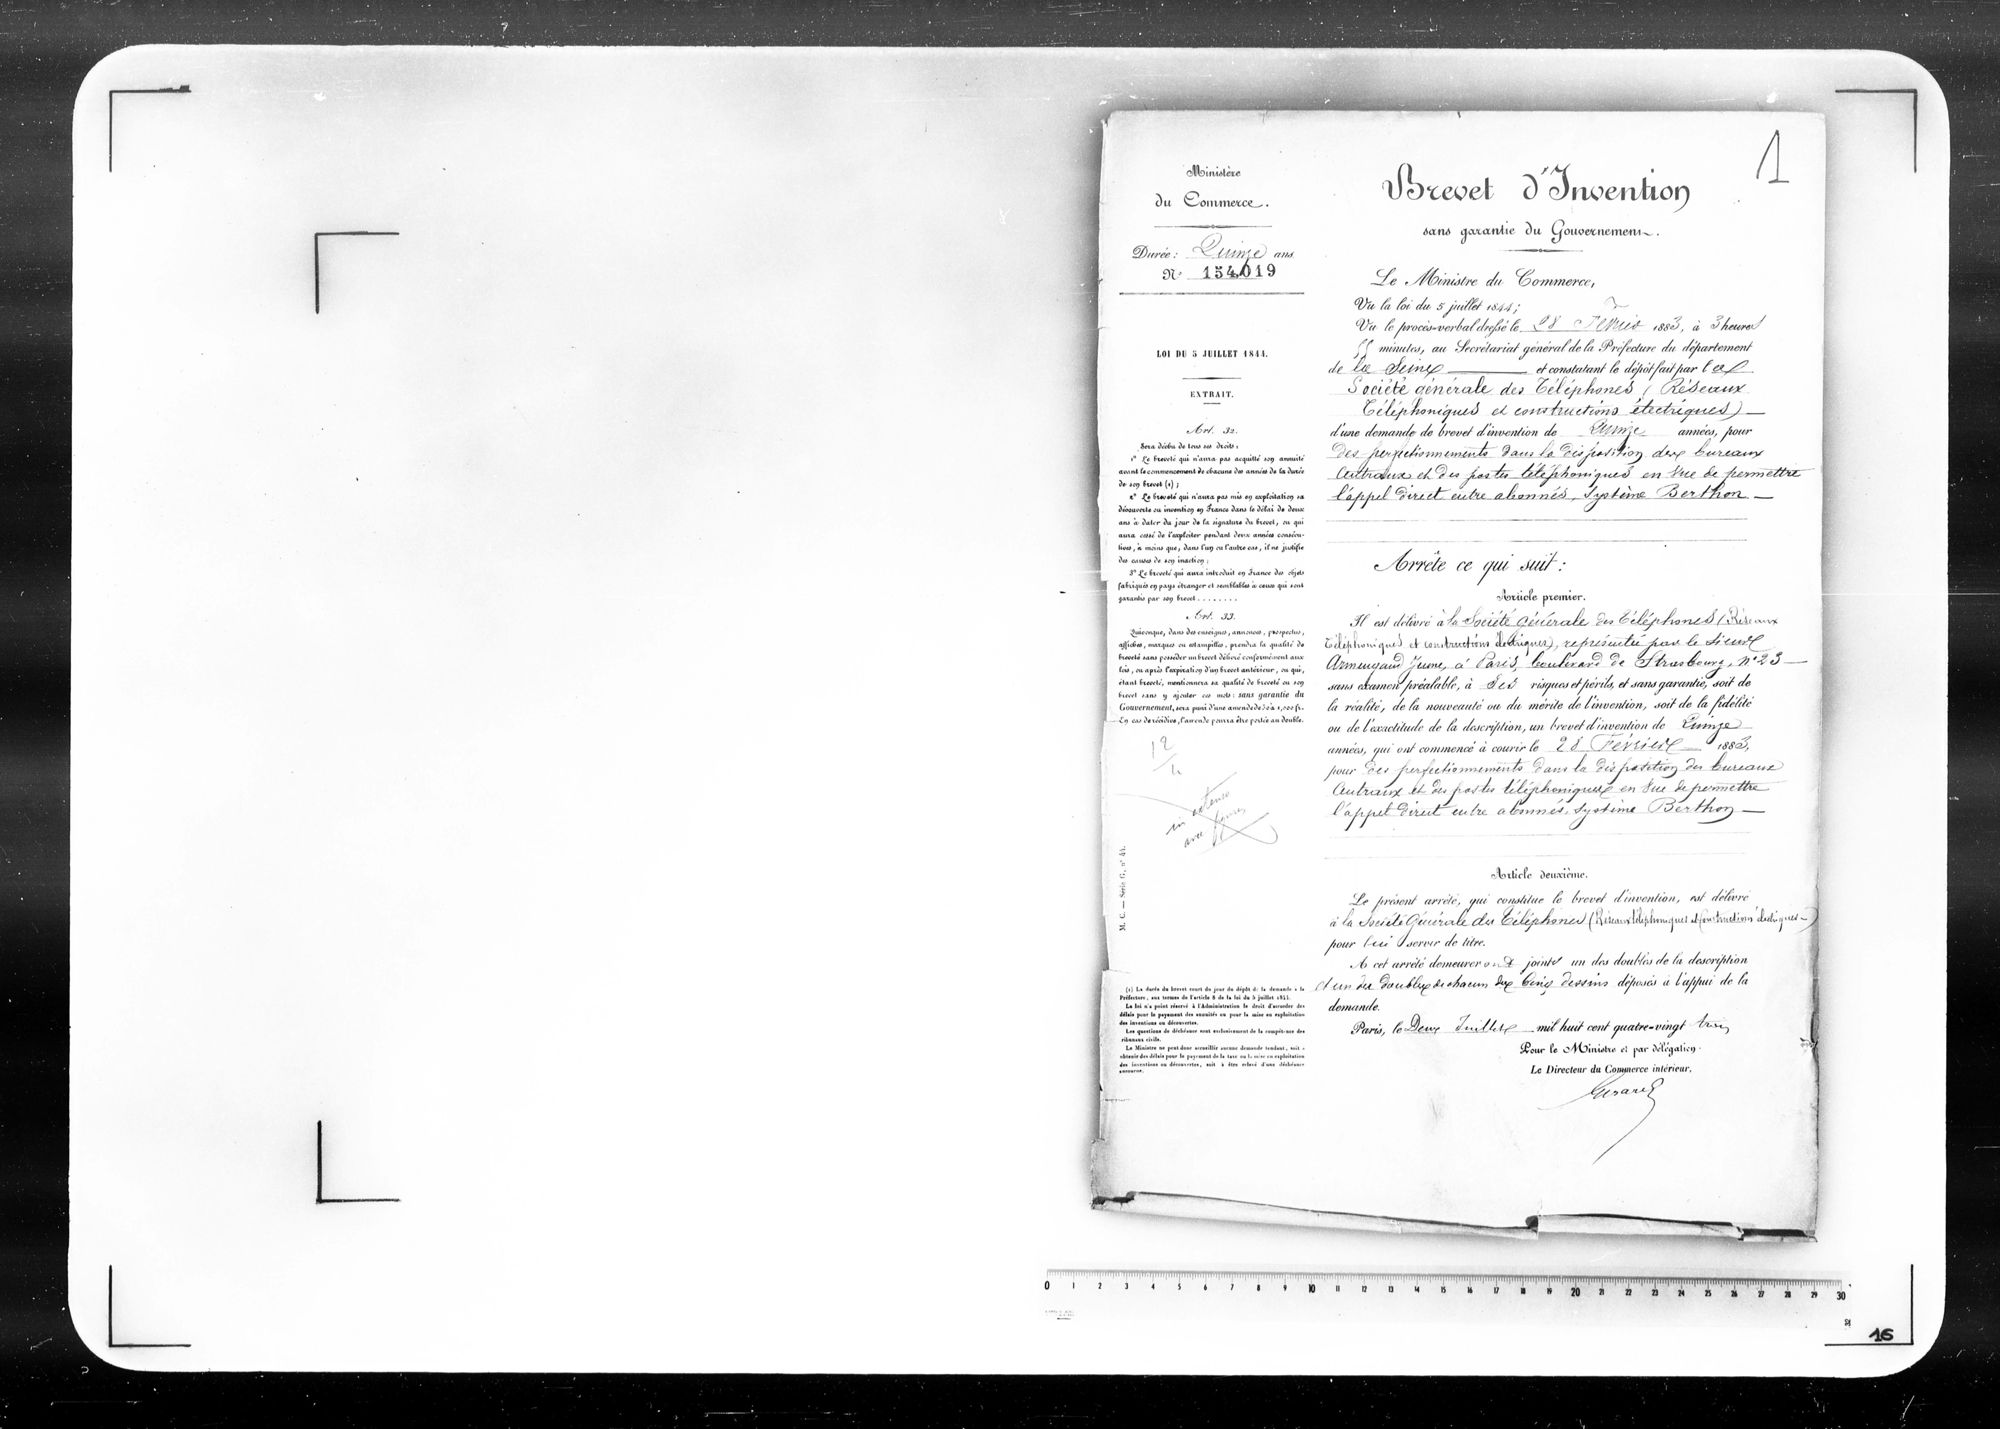 1
Ministère
du Commerce.
Durée: Quinze ans
N° 154,019
LOI DU 5 JUILLET 1844.
EXTRAIT.
Art. 32.
Sera déchu de tous ses droits:
1° Le breveté qui n'aura pas acquitté son annuité
avant le commencement de chacune des années de la durée
de son brevet (1);
2° Le breveté qui n'aura pas mis en exploitation sa
découverte ou invention en France dans le délai de deux
ans à dater du jour de la signature du brevet, ou qui
aura cessé de l'exploiter pendant deux années consécu-
tives, à moins que, dans l'un ou l'autre cas, il ne justifie
des causes de son inaction;
3° Le breveté qui aura introduit en France des objets
fabriqués en pays étranger et semblables à ceux qui sont
garantis par son brevet........
Art. 33.
Quiconque, dans des enseignes, annonces, prospectus,
affiches, marques ou estampilles, prendra la qualité de
breveté sans posséder un brevet délivré conformément aux
lois, ou après l'expiration d'un brevet antérieur, ou qui,
étant breveté, mentionnera sa qualité de breveté ou son
brevet sans y ajouter ces mots: sans garantie du
Gouvernement, sera puni d'une amende de 50 à 1,000 fr.
En cas de récidive, l'amende pourra être portée au double.
12
4
in extenso
avec
M. C. — Série G, n° 44.
(1) La durée du brevet court du jour du dépôt de la demande à la
Préfecture, aux termes de l'article 8 de la loi du 5 juillet 1844.
La loi n'a point réservé à l'Administration le droit d'accorder des
délais pour le payement des annuités ou pour la mise en exploitation
des inventions ou découvertes.
Les questions de déchéance sont exclusivement de la compétence des
tribunaux civils.
Le Ministre ne peut donc accueillir aucune demande tendant, soit à
obtenir des délais pour le payement de la taxe ou la mise en exploitation
des inventions ou découvertes, soit à être relevé d'une déchéance
encourue.
Brevet d'Invention
sans garantie du Gouvernement.
Le Ministre du Commerce,
Vu la loi du 5 juillet 1844;
Vu le procès-verbal dressé le 28 Février 1883, à 3 heures
55 minutes, au Secrétariat général de la Préfecture du département
de la Seine et constatant le dépôt fait par la
Société générale des Téléphones (Réseaux
Téléphoniques et constructions électriques) —
d'une demande de brevet d'invention de Quinze années, pour
des perfectionnements dans la disposition des bureaux
Centraux et des postes téléphoniques en vue de permettre
l'appel direct entre abonnés, système Berthon —
Arrête ce qui suit:
Article premier.
Il est délivré à la Société Générale des Téléphones (Réseaux
Téléphoniques et constructions électriques), représentée par le sieur
Armengaud Jeune, à Paris, boulevard de Strasbourg, n° 23 —
sans examen préalable, à ses risques et périls, et sans garantie, soit de
la réalité, de la nouveauté ou du mérite de l'invention, soit de la fidélité
ou de l'exactitude de la description, un brevet d'invention de Quinze
années, qui ont commencé à courir le 28 Février 1883,
pour des perfectionnements dans la disposition des bureaux
Centraux et des postes téléphoniques en vue de permettre
l'appel direct entre abonnés, système Berthon —
Article deuxième.
Le présent arrêté, qui constitue le brevet d'invention, est délivré
à la Société Générale des Téléphones (Réseaux téléphoniques et Constructions électriques —)
pour lui servir de titre.
A cet arrêté demeureront joints un des doubles de la description
et un des doubles de chacun des Cinq dessins déposés à l'appui de la
demande.
Paris, le Deux Juillet mil huit cent quatre-vingt trois
Pour le Ministre et par délégation.
Le Directeur du Commerce intérieur,
Girard
0 1 2 3 4 5 6 7 8 9 10 11 12 13 14 15 16 17 18 19 20 21 22 23 24 25 26 27 28 29 30
16